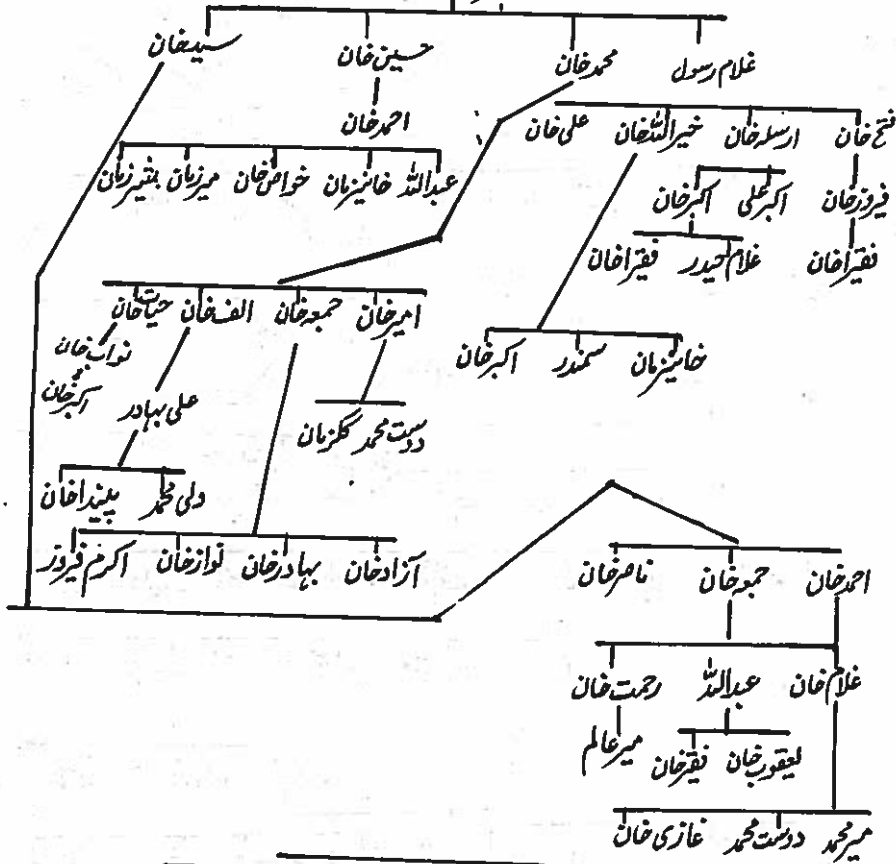 غلام رسول محمد خان حسین خان سید خان
احمد خان
فتح خان ارسلہ خان خیراللہ خان علی خان
عبداللہ خانیزمان خواص خان میرزمان بشیرزمان
فیروز خان اکبر علی اکبر خان
فقیرا خان غلام حیدر فقیرا خان
امیر خان جمعہ خان الف خان حیات خان
نواب خان
خانیزمان سمندر اکبر خان
اکبر خان
علی بہادر
دوست محمد گلزمان
ولی محمد پیندا خان
آزاد خان بہادر خان نواز خان اکرم فیروز
احمد خان جمعہ خان ناصر خان
غلام خان عبداللہ رحمت خان
یعقوب خان فقیر خان میر عالم
میر محمد دوست محمد غازی خان